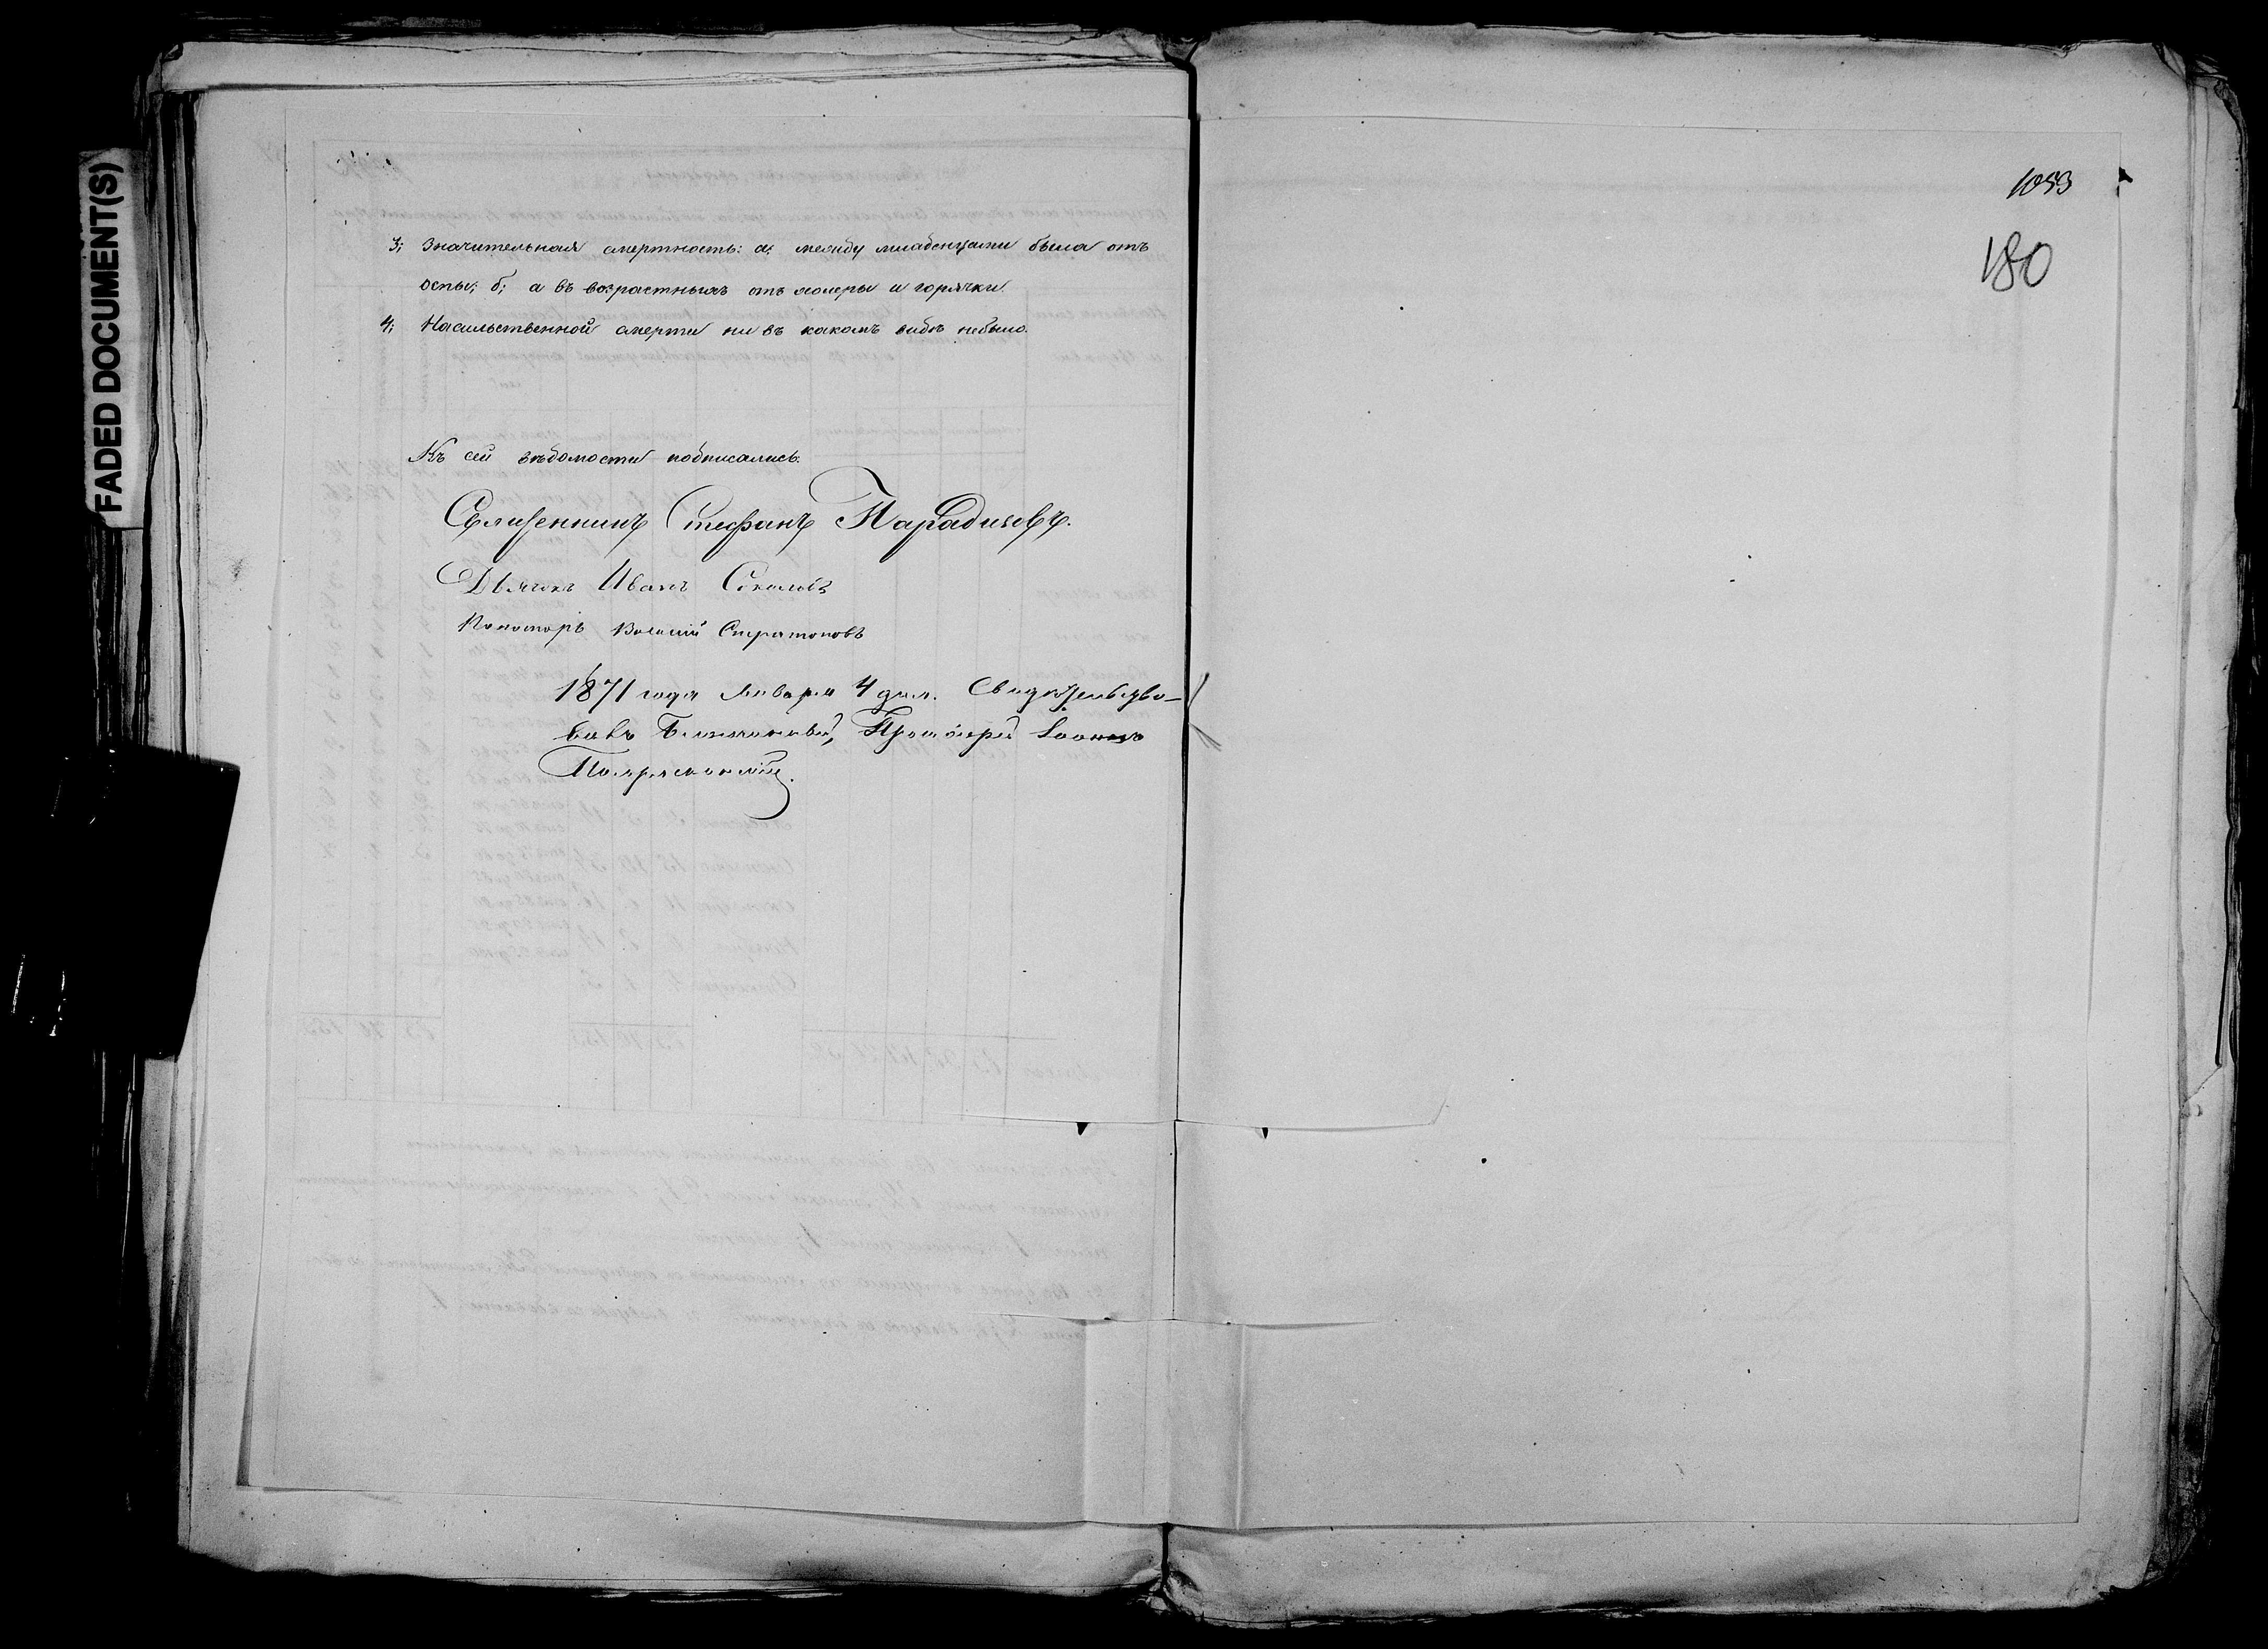 FADED DOCUMENT(S)
1053
180
3; Значительная смертность: а; между младенцами была отъ
оспы; б; а въ возрастныхъ отъ холеры и горячки.
4; Насильственной смерти ни въ какомъ видѣ небыло.
Къ сей вѣдомости подписались:
Священникъ Стефанъ Парадизовъ.
Дьячокъ Иванъ Соколовъ
Пономарь Василій Стратоновъ
1871 года Января 4 дня. Свидѣтельство-
валъ Протоіерей Іоаннъ